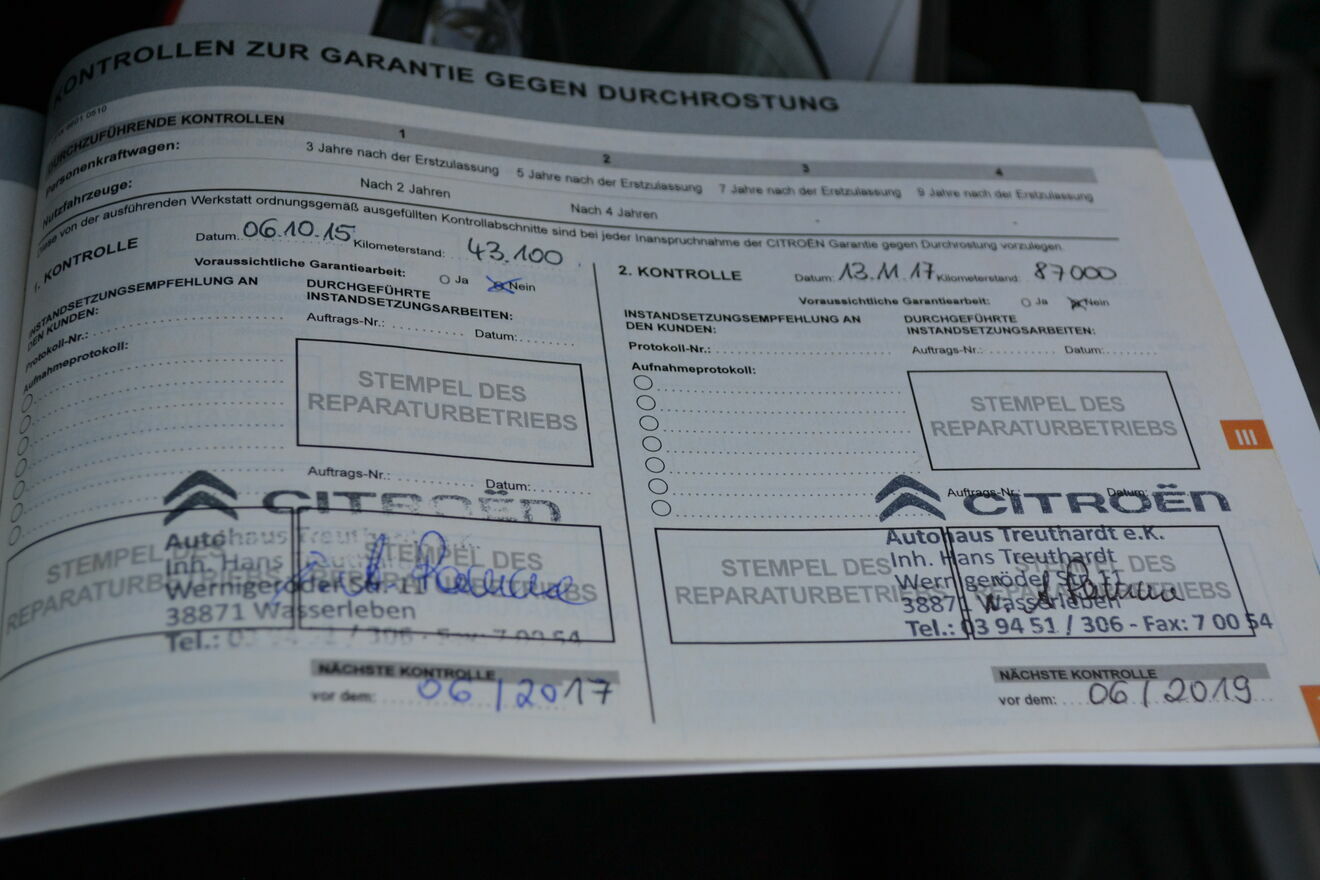 KONTROLLEN ZUR GARANTIE GEGEN DURCHROSTUNG
DURCHZUFÜHRENDE KONTROLLEN 1 2 3 4
Personenkraftwagen: 3 Jahre nach der Erstzulassung 5 Jahre nach der Erstzulassung 7 Jahre nach der Erstzulassung 9 Jahre nach der Erstzulassung
Nutzfahrzeuge: Nach 2 Jahren Nach 4 Jahren - -
Diese von der ausführenden Werkstatt ordnungsgemäß ausgefüllten Kontrollabschnitte sind bei jeder Inanspruchnahme der CITROËN Garantie gegen Durchrostung vorzulegen.
1. KONTROLLE Datum: 06.10.15 Kilometerstand: 43.100
Voraussichtliche Garantiearbeit: Ja Nein
INSTANDSETZUNGSEMPFEHLUNG AN
DEN KUNDEN:
Protokoll-Nr.:
Aufnahmeprotokoll:
DURCHGEFÜHRTE
INSTANDSETZUNGSARBEITEN:
Auftrags-Nr.: Datum:
STEMPEL DES
REPARATURBETRIEBS
Auftrags-Nr.: Datum:
CITROËN
STEMPEL DES
REPARATURBETRIEBS
STEMPEL DES
REPARATURBETRIEBS
Autohaus
Inh. Hans
Wernigeröder Str. 11
38871 Wasserleben
Tel.: 03 94 51 / 306 - Fax: 7 00 54
NÄCHSTE KONTROLLE
vor dem: 06/2017
2. KONTROLLE Datum: 13.11.17 Kilometerstand: 87000
Voraussichtliche Garantiearbeit: Ja Nein
INSTANDSETZUNGSEMPFEHLUNG AN
DEN KUNDEN:
Protokoll-Nr.:
Aufnahmeprotokoll:
DURCHGEFÜHRTE
INSTANDSETZUNGSARBEITEN:
Auftrags-Nr.: Datum:
STEMPEL DES
REPARATURBETRIEBS
Auftrags-Nr.: Datum:
CITROËN
STEMPEL DES
REPARATURBETRIEBS
STEMPEL DES
REPARATURBETRIEBS
Autohaus Treuthardt e.K.
Inh. Hans Treuthardt
Wernigeröder Str. 11
38871 Wasserleben
Tel.: 03 94 51 / 306 - Fax: 7 00 54
NÄCHSTE KONTROLLE
vor dem: 06/2019
III